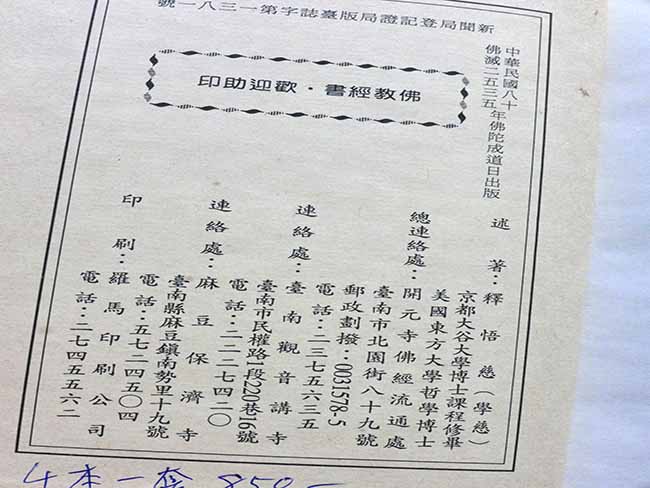 新聞局登記證局版臺誌字第一三八一號
佛教經書・歡迎助印
中華民國八十
佛滅二五三五年佛陀成道日出版
述著：釋悟慈（學慈）
京都大谷大學博士課程修畢
美國東方大學哲學博士
總連絡處：開元寺佛經流通處
臺南市北園街八十九號
郵政劃撥：0031578-5
電話：二三七五六三五
連絡處：臺南觀音講寺
臺南市民權路1段220巷16號
電話：二二二七四二〇
連絡處：麻豆保濟寺
臺南縣麻豆鎮南勢里十九號
電話：五七二四五〇四
印刷：羅馬印刷公司
電話：二七四五五六二
4本一套 850-